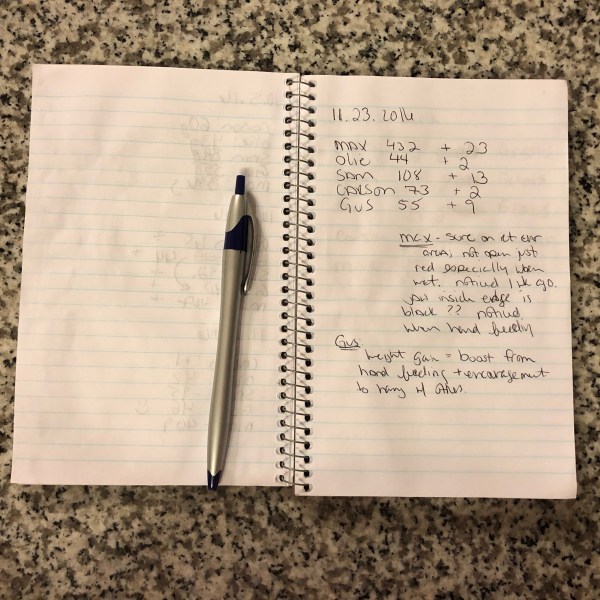 11.23.2016
Max 432 + 23
Olie 44 + 2
Sam 108 + 13
Carson 73 + 2
Gus 55 + 9
Max - sore on rt ear
area, not open just
red especially when
wet. noticed 1 wk ago.
jaw inside edge is
black ?? noticed
when hand feeding
Gus
weight gain = boost from
hand feeding + encouragement
to hang w/ others.